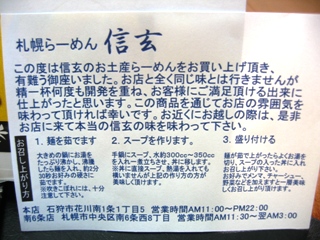 札幌らーめん 信玄
この度は信玄のお土産らーめんをお買い上げ頂き、
有難う御座いました。お店と全く同じ味とは行きませんが
精一杯何度も開発を重ね、お客様にご満足頂ける出来に
仕上がったと思います。この商品を通じてお店の雰囲気を
味わって頂ければ幸いです。お近くにお越しの際は、是非
お店に来て本当の信玄の味を味わって下さい。
お召し上がり方
1. 麺を茹でます
大きめの鍋にお湯を
たっぷり沸かし、沸騰
したら麺を入れ、約2分
30秒お好みの硬さに
茹でます。
※吹きこぼれには、十分
注意して下さい。
2. スープを作ります。
手鍋にスープ、約300cc〜350cc
を入れ一煮立ちさせ、丼に移します。
※丼に直接スープ、熱湯を入れても
構いませんが上記の作り方の方が
美味しく頂けます。
3. 盛り付ける
麺が茹で上がったらよくお湯を
切り、スープの入った丼に入れ
お召し上がり下さい。
お好みでメンマ、チャーシュー、
野菜などを加えますと一層美味
しくお召し上り頂けます。
本店 石狩市花川南1条1丁目5 営業時間AM11:00〜PM22:00
南6条店 札幌市中央区南6条西8丁目 営業時間AM11:30〜翌AM3:00